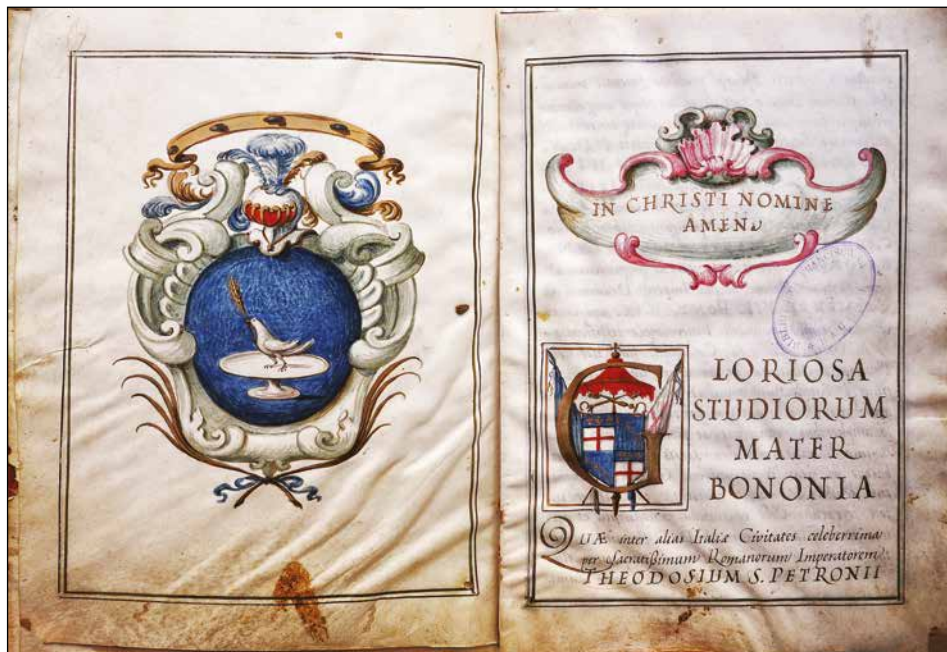 IN CHRISTI NOMINE
AMEN
GLORIOSA
STUDIORUM
MATER
BONONIA
QUÆ inter alias Italiæ Civitates celeberrima
per Sacratißimum Romanorum Imperatorem
THEODOSIUM S. PETRONII